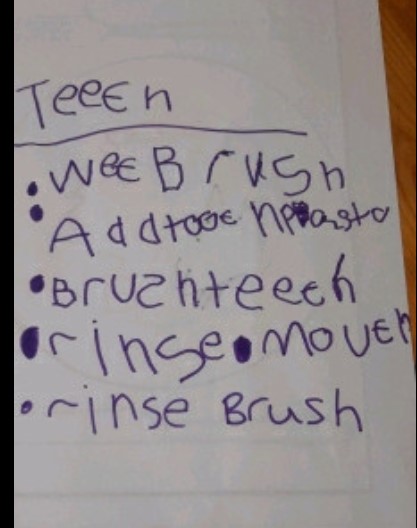 Teeth
• Wet Brush
• Add toothpaste
• Brush teeth
• rinse • mouth
• rinse Brush